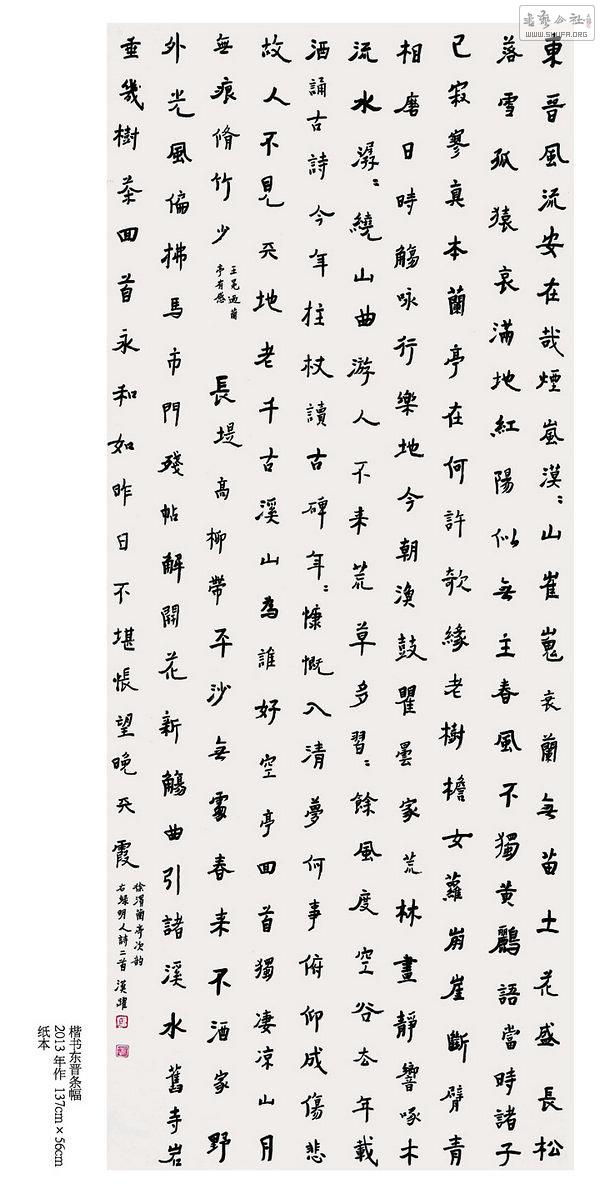 東晉風流安在哉煙嵐漠﹕山崔嵬哀蘭無苗土花盛長松
落雪孤猿哀滿地紅陽似無主春風不獨黃鸝語當時諸子
已寂寥真本蘭亭在何許欹緣老樹擔女蘿崩崖斷臂青
相磨日時觴咏行樂地今朝漁鼓瞿曇家荒林晝靜響啄木
流水潺﹕繞山曲游人不来荒草多習﹕餘風度空谷去年載
酒誦古詩今年拄杖讀古碑年﹕慷慨入清夢何事俯仰成傷悲
故人不見天地老千古溪山為誰好空亭回首獨凄凉山月
無痕脩竹少王冕過蘭亭有感長堤高柳帶平沙無處春来不酒家野
外光風偏拂馬市門殘帖解開花新觴曲引諸溪水舊寺岩
垂幾樹茶回首永和如昨日不堪悵望晚天霞
徐渭蘭亭次韵
右録明人詩二首 漢躍
楷书东晋条幅
2013 年作 137cm×56cm
纸本
WWW.SHUFA.ORG